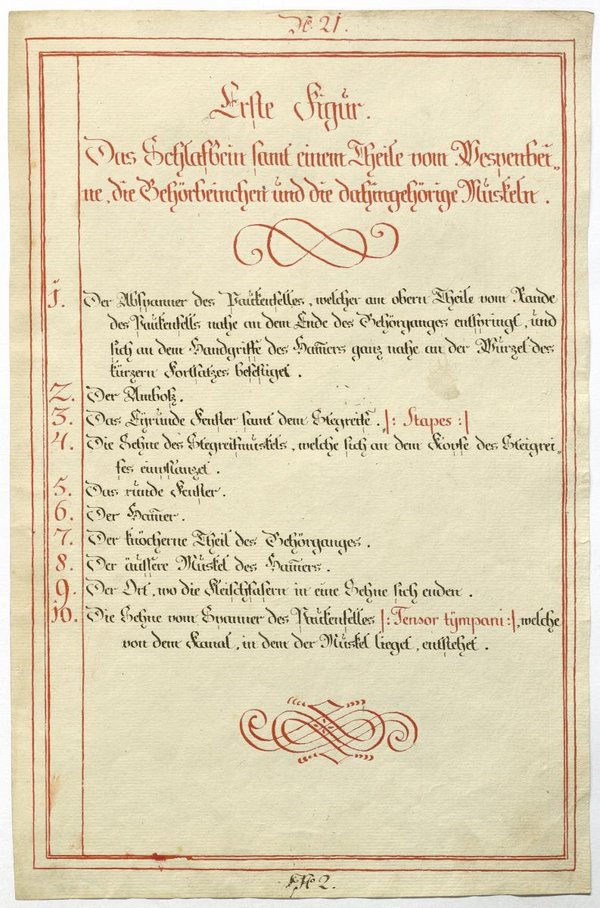 No. 21.
Erste Figur.
Das Schlafbein samt einem Theile vom Wespenbei„
ne, die Gehörbeinchen und die dahingehörige Muskeln.
1. Der Abspanner des Paukenfelles, welcher am obern Theile vom Rande
des Paukenfells nahe an dem Ende des Gehörganges entspringt, und
sich an dem Handgriffe des Ham̄ers ganz nahe an der Wurzel des
kürzern Fortsatzes befestiget.
2. Der Amboß.
3. Das Eyrunde Fenster samt dem Stegreife. |: Stapes :|
4. Die Sehne des Stegreifmuskels, welche sich an dem Kopfe des Steigrei„
fes einpflanzet.
5. Das runde Fenster.
6. Der Ham̄er.
7. Der knöcherne Theil des Gehörganges.
8. Der äussere Muskel des Ham̄ers.
9. Der Ort, wo die Fleischfasern in eine Sehne sich enden.
10. Die Sehne vom Spanner des Paukenfelles |: Tensor tÿmpani :|, welche
von dem Kanal, in dem der Muskel lieget, entstehet.
No 2.